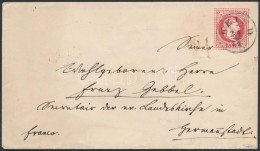 Seiner
Wohlgeboren Herrn
Franz Gebbel
Secretair der ev. Landeskirche in
Franco. Hermannstadt